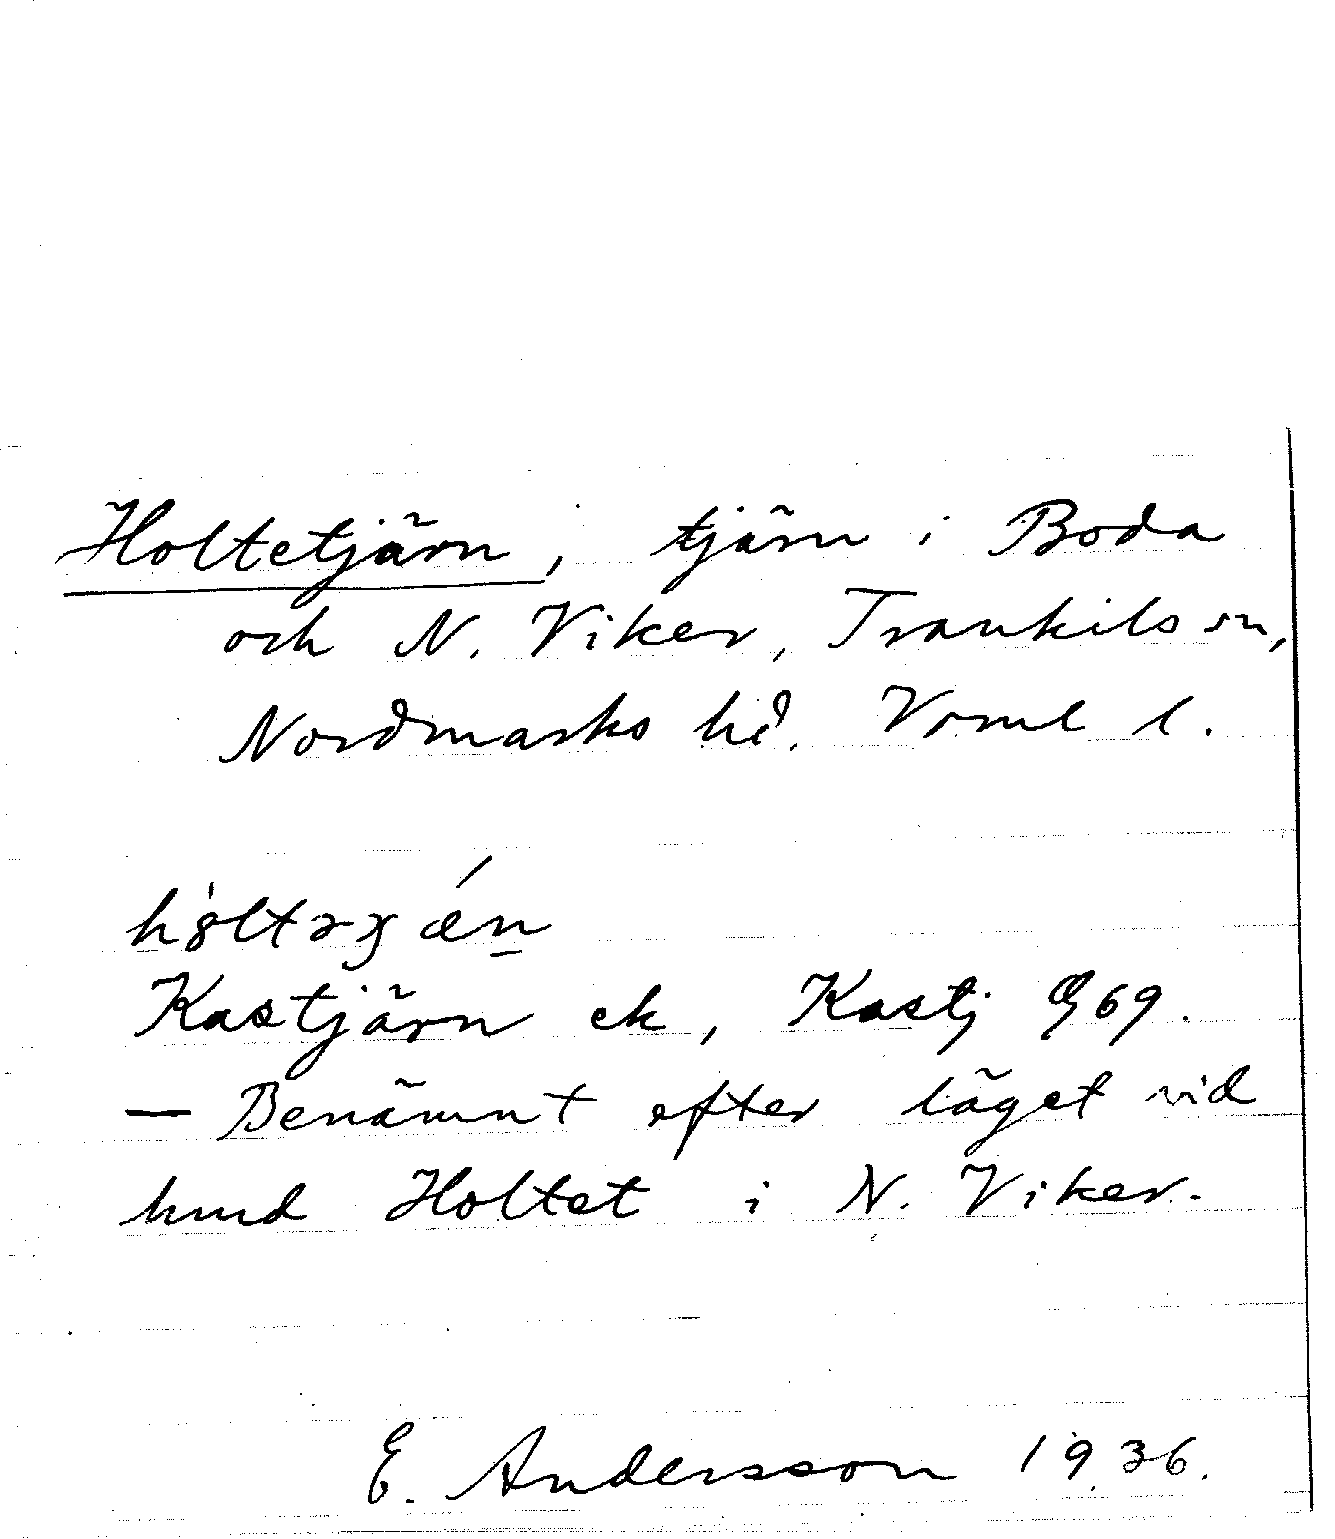 Holtetjärn, tjärn i Boda
och N. Viker, Trankils sn,
Nordmarks hd. Verml l.
Kastjärn ek, Kastj G69.
— Benämnt efter läget vid
hmd Holtet i N. Viker.
E. Andersson 1936.